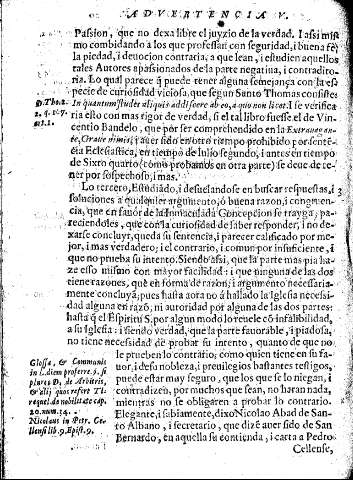 ADVERTENCIA V.
Passion, que no dexa libre el juyzio de la verdad. I assi mis
mo combidando a los que professan con seguridad, i buena fe
la piedad, i deuocion contraria, a que lean, i estudien aquellos
tales Autores apassionados de la parte negatiua, i contradito-
ria. Lo qual parece q̃ puede tener alguna semejança con la es
pecie de curiosidad viciosa, que segun Santo Thomas consiste
D.Tho.2. In quantum studet aliquis addiscere ab eo, à quo non licet. I se verifica
2. q. 167. ria esto con mas rigor de verdad, si el tal libro fuesse el de Vin-
art.1. centio Bandelo, que por ser comprehendido en la Extrauagan
te, Graue nimis, i auer sido en otro tiempo prohibido por senté-
cia Eclesiastica, en tiempo de Iulio segundo, i antes en tiempo
de Sixto quarto (como prohamos en otra parte) se deue de te-
ner por sospechoso, i mas.
Lo tercero, Estudiãdo, i desuelandose en buscar respuestas, i 3
soluciones a qualquier argumento, ò buena razon, i congruen-
cia, que en fauor de la Inmaculada Concepcion se trayga, pa-
reciendoles, que con la curiosidad de saber responder, i no de-
xarse concluyr, queda su sentencia, i parecer calificado por me
jor, i mas verdadero; i el contrario, i comun por insuficiente, i
que no prueba su intento. Siendo assi, que la parte mas pia ha-
ze esso mismo con mayor facilidad: i que ninguna de las dos
tiene razones, què en forma de razon, i argumento necessaria-
mente concluya; pues hasta aora no à hallado la Iglesia necessi-
dad alguna en razõ, ni autoridad por alguna de las dos partes:
hasta q̃ el Espiritu S. por algun modo lo reuele cõ infalibilidad,
a su Iglesia: i siendo verdad, que la parte fauorable, i piadosa,
no tiene necessidad de probar su intento, quanto de que no
Glossa, & Communis le prueben lo contrario: como quien tiene en su fa-
in L. diem proferre. §. si uor, i desu nobleza, i preuilegios bastantes testigos,
plures D, de Arbitris, puede estar muy seguro, que los que se lo niegan, i
& alij quos refert Ti contradizen, por muchos que sean, no haran nada,
raquel. de nobilitate cap. mientras no se obligaren a probar lo contrario.
20. num. 34. Elegante, i sabiamente, dixo Nicolao Abad de San-
Nicolaus in Petr. Ce to Albano, i secretario, que dizẽ auer sido de San
llensi lib. 9. Epist. 9. Bernardo, en aquella su contienda, i carta a Pedro
Cellense,